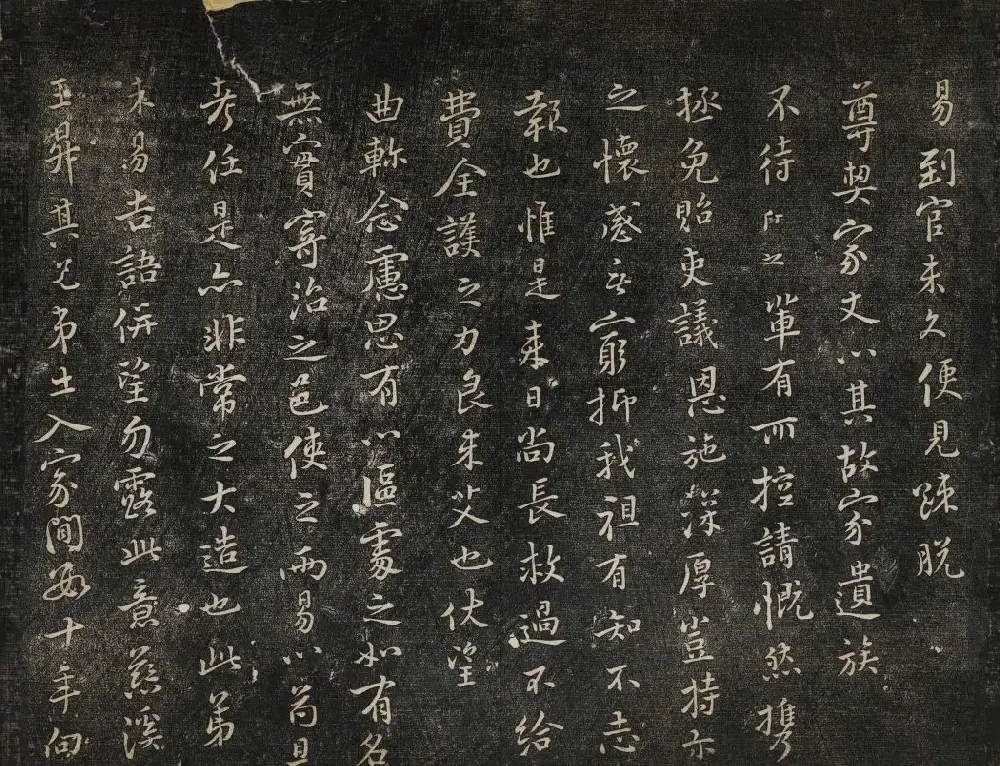 易到官未久便見踈脫
尊契家丈以其故家遺族
不待 之軰有所控請慨然㩦
拯免貽吏議恩施深厚豈特
之懷感至窮抑我祖有知不忘
報也惟是來日尚長救過不給
費全護之力良未艾也伏望
曲軫念慮思有以區處之如有名
無實寄治之邑使之兩易以苟且
考任是亦非常之大造也此弟
未易告語併望勿露此意慈溪
王 其兄弟士人家間 十年向